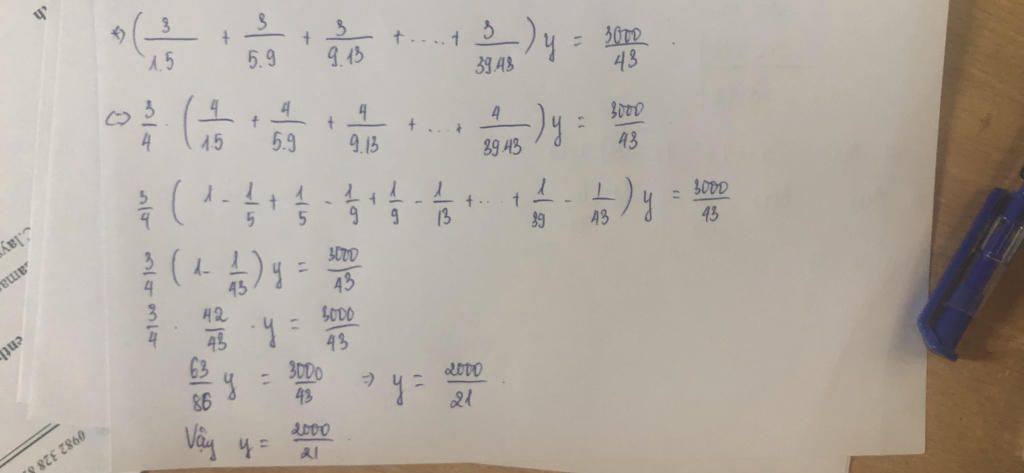 *) (3/1.5 + 3/5.9 + 3/9.13 + .... + 3/39.43) y = 3000/43 .
<=> 3/4 . (4/1.5 + 4/5.9 + 4/9.13 + ... + 4/39.43) y = 3000/43
3/4 (1 - 1/5 + 1/5 - 1/9 + 1/9 - 1/13 + ... + 1/39 - 1/43) y = 3000/43
3/4 (1 - 1/43) y = 3000/43
3/4 . 42/43 . y = 3000/43
63/86 y = 3000/43 => y = 2000/21 .
Vậy y = 2000/21 .
0982 328